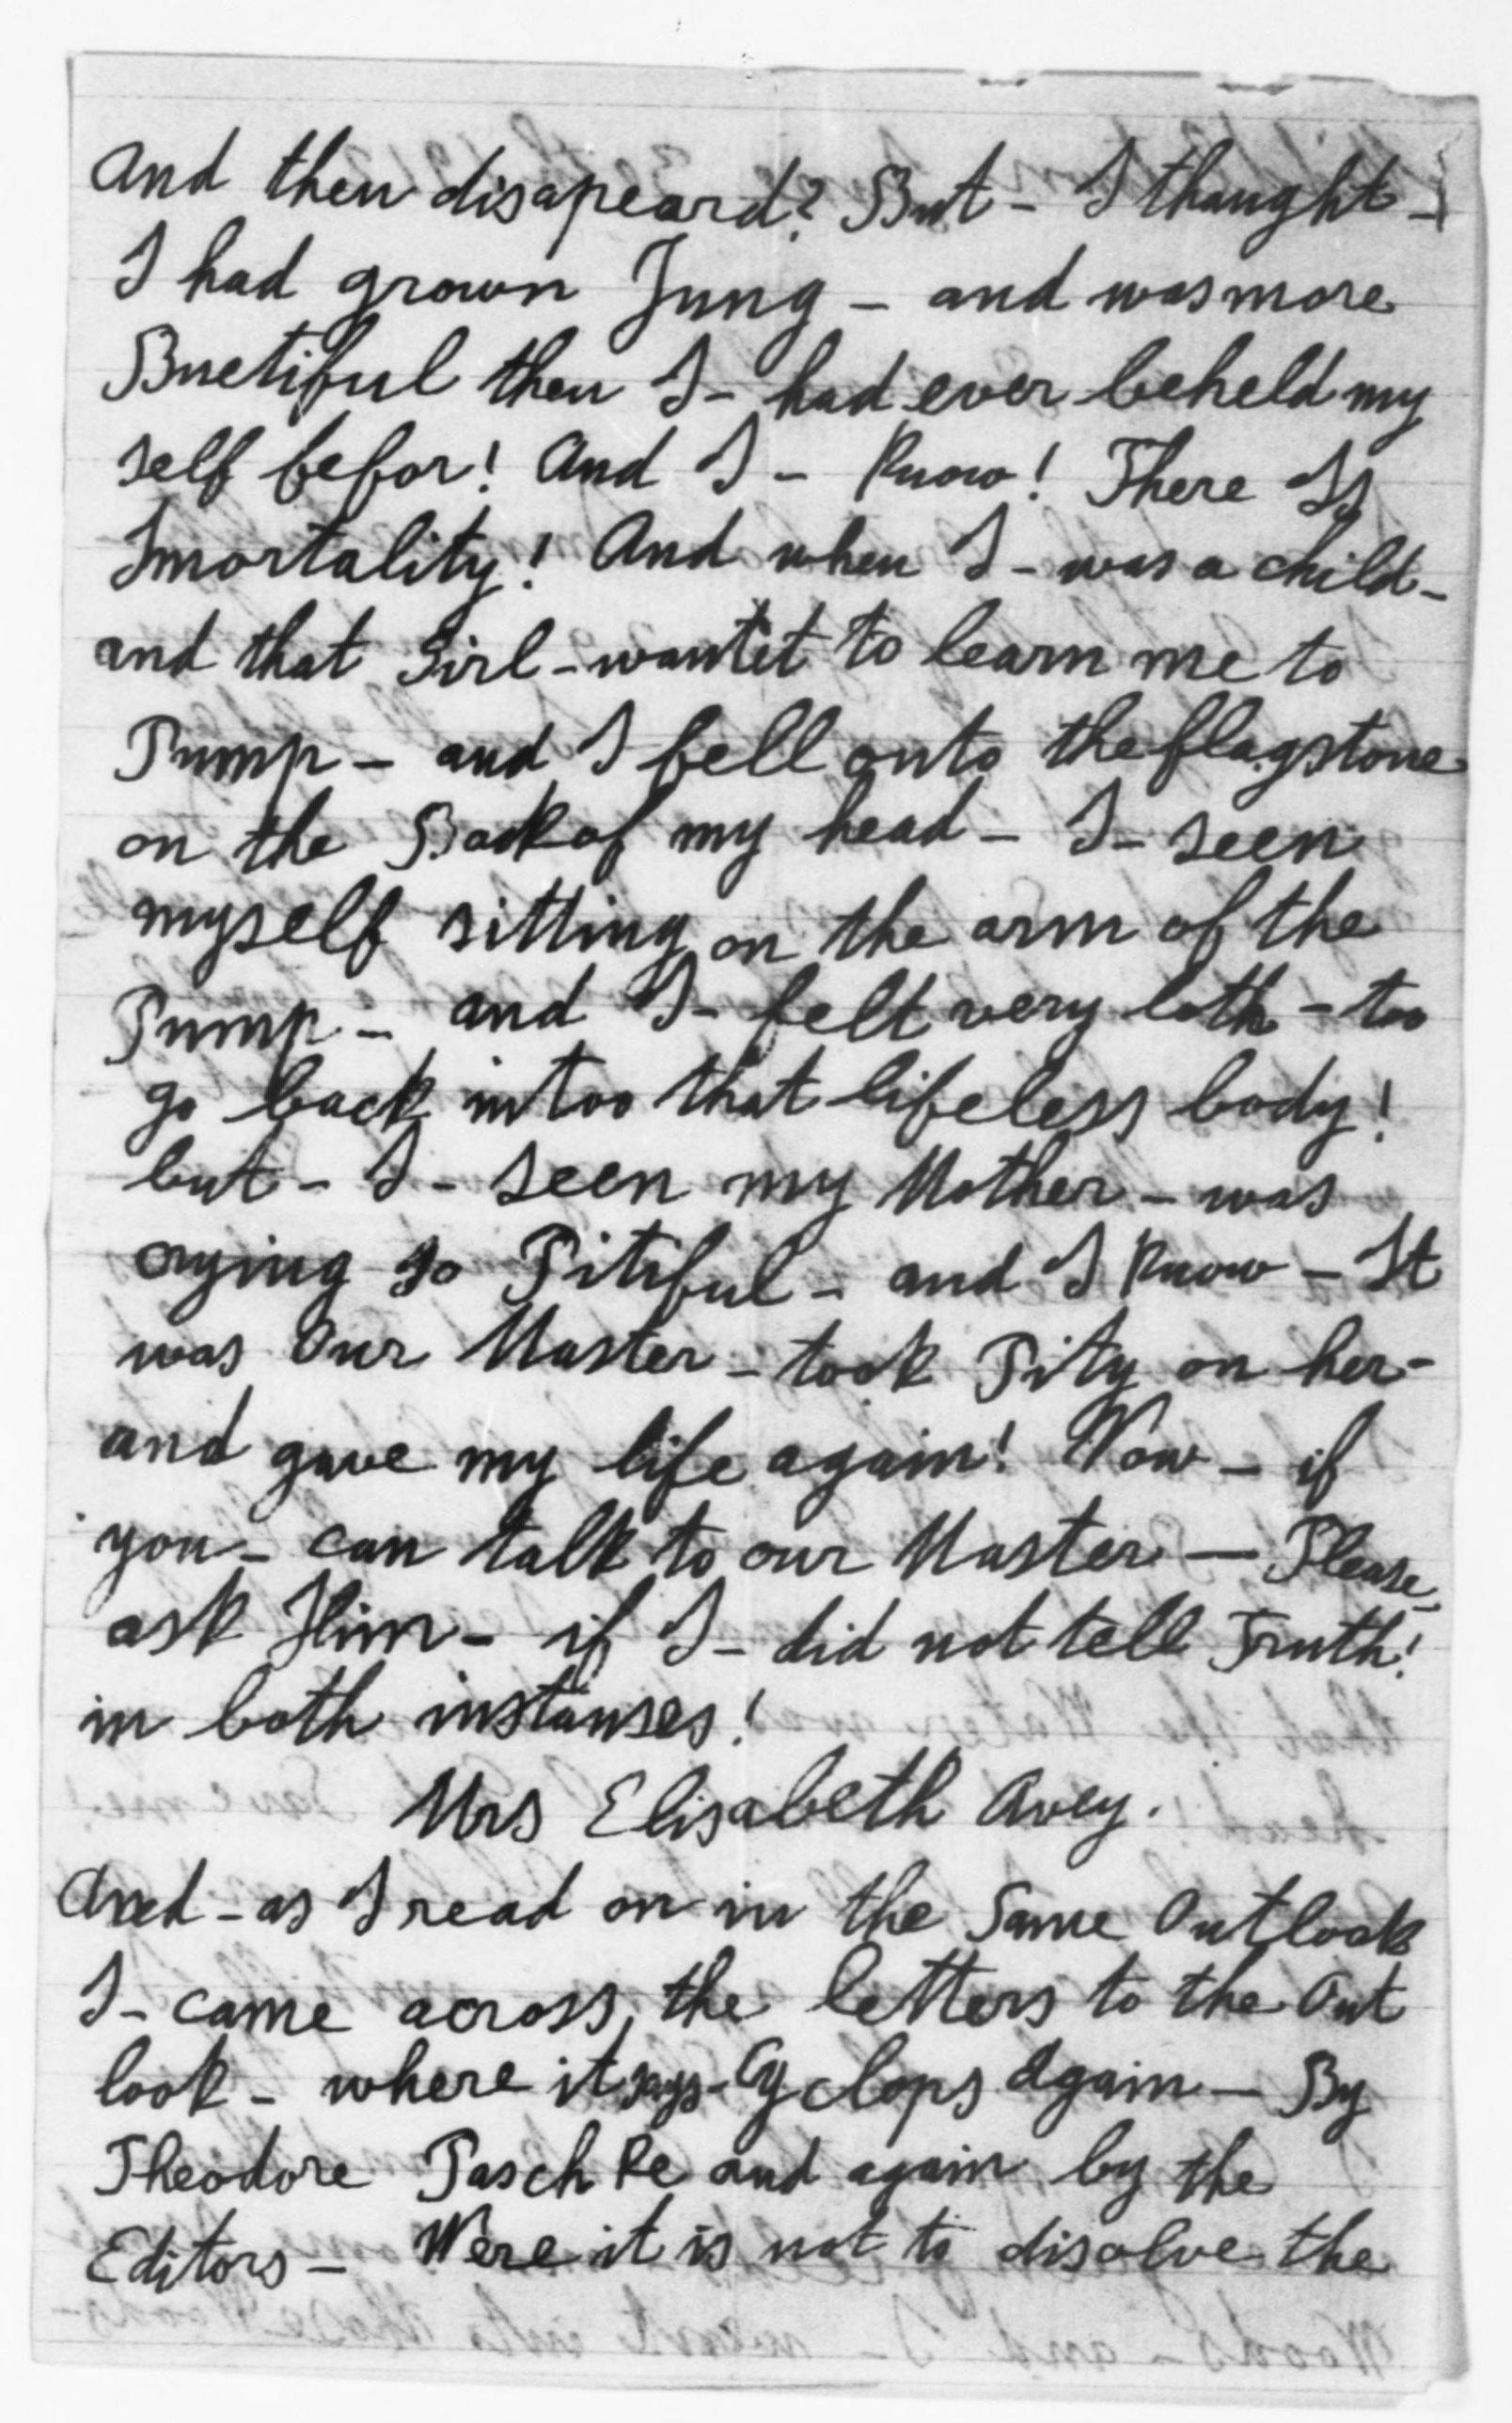 And then disapeard? But - I thaught -
I had grown Jung - and was more
Buetiful then I - had ever beheld my
self befor! And I - Know! There Is
Imortality! And when I - was a child -
and that Girl - wantet to learn me to
Pump - and I fell onto the flagstone
on the Back of my head - I - seen
myself sitting on the arm of the
Pump - and I - felt very loth - too
go back in too that lifeless body!
but - I - seen my Mother - was
crying so Pitiful - and I Know - It
was Our Master - took Pity on her -
and gave my life again! Now - if
you - can talk to our Master - Please,
ask Him - if I - did not tell Truth!
in both instanses!
Mrs Elisabeth Avey.
And - as I read on in the Same Outlook
I - came across, the letters to the Out
look - where it says - Cyclops Again - By
Theodore Paschke and again by the
Editors - Were it is not to disolve the